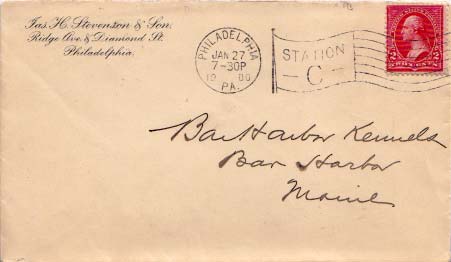 Jas. H. Stevenson & Son.
Ridge Ave. & Diamond St.
Philadelphia.
PHILADELPHIA
JAN 27
7-30P
1900
PA.
STATION
C
2 2
TWO CENTS
Bar Harbor Kennels
Bar Harbor
Maine